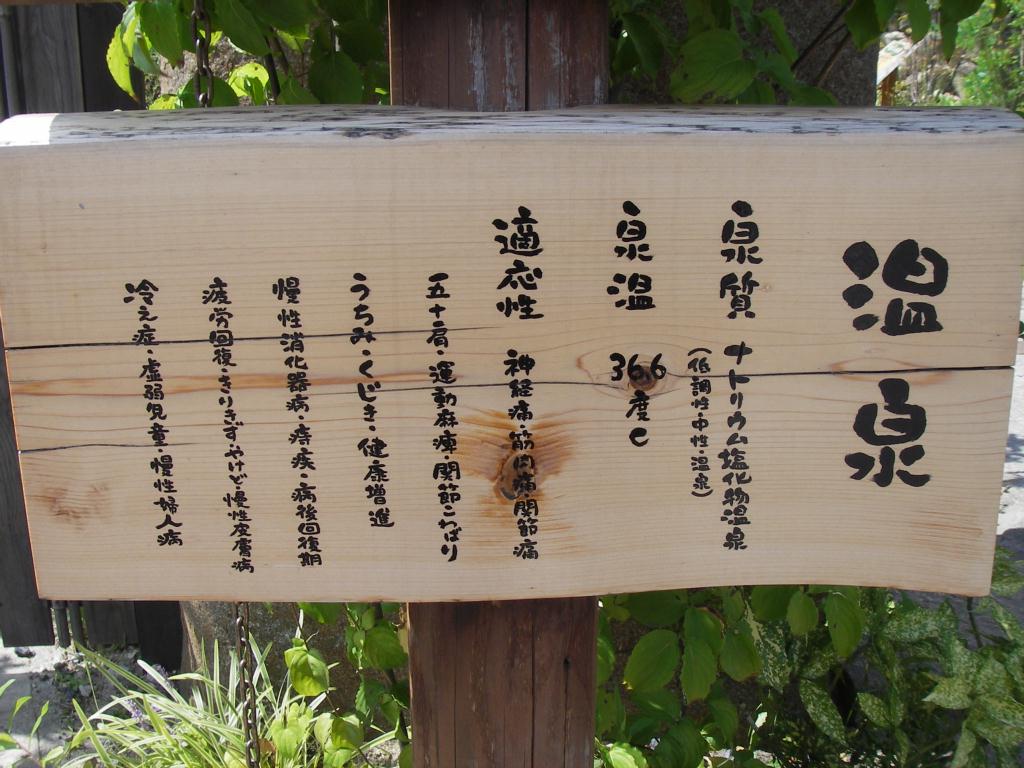 温泉
泉質 ナトリウム塩化物温泉
（低調性・中性・温泉）
泉温 36.6度C
適応性 神経痛・筋肉痛・関節痛
五十肩・運動麻痺・関節こわばり
うちみ・くじき・健康増進
慢性消化器病・痔疾・病後回復期
疲労回復・きりきず・やけど慢性皮膚病
冷え症・虚弱児童・慢性婦人病